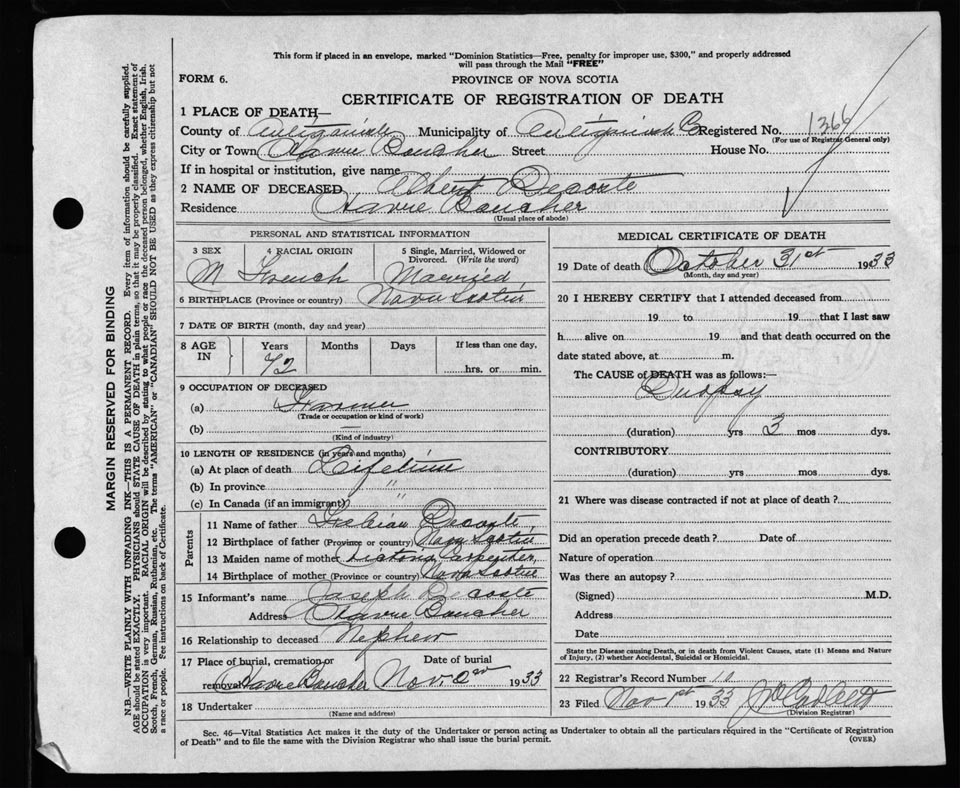 This form if placed in an envelope, marked "Dominion Statistics—Free, penalty for improper use, $300," and properly addressed
will pass through the Mail "FREE"
FORM 6.
PROVINCE OF NOVA SCOTIA
CERTIFICATE OF REGISTRATION OF DEATH
1 PLACE OF DEATH—
County of Antigonish Municipality of Antigonish Co Registered No. 1366
(For use of Registrar General only)
City or Town Havre Boucher Street House No.
If in hospital or institution, give name
2 NAME OF DECEASED Albert Decoste
Residence Havre Boucher
(Usual place of abode)
PERSONAL AND STATISTICAL INFORMATION
3 SEX 4 RACIAL ORIGIN 5 Single, Married, Widowed or Divorced. (Write the word)
M French Married
6 BIRTHPLACE (Province or country) Nova Scotia
7 DATE OF BIRTH (month, day and year)
8 AGE IN Years Months Days If less than one day,
72 hrs. or min.
9 OCCUPATION OF DECEASED
(a) Farmer
(Trade or occupation or kind of work)
(b) —
(Kind of industry)
10 LENGTH OF RESIDENCE (in years and months)
(a) At place of death Lifetime
(b) In province "
(c) In Canada (if an immigrant) "
Parents
11 Name of father Decoste
12 Birthplace of father (Province or country) Nova Scotia
13 Maiden name of mother Victoria Carpenter
14 Birthplace of mother (Province or country) Nova Scotia
15 Informant's name Joseph Decoste
Address Havre Boucher
16 Relationship to deceased Nephew
17 Place of burial, cremation or removal Havre Boucher Date of burial Nov. 2nd 1933
18 Undertaker
(Name and address)
MEDICAL CERTIFICATE OF DEATH
19 Date of death October 31st 1933
(Month, day and year)
20 I HEREBY CERTIFY that I attended deceased from
19 to 19 that I last saw
h alive on 19 and that death occurred on
date stated above, at m.
The CAUSE of DEATH was as follows:—
Dropsy
(duration) yrs 3 mos dys.
CONTRIBUTORY
(duration) yrs mos dys.
21 Where was disease contracted if not at place of death?
Did an operation precede death? Date of
Nature of operation
Was there an autopsy?
(Signed) M.D.
Address
Date
State the Disease causing Death, or in death from Violent Causes, state (1) Means and Nature
of Injury, (2) whether Accidental, Suicidal or Homicidal.
22 Registrar's Record Number 10
23 Filed Nov 1st 1933
(Division Registrar)
Sec. 46—Vital Statistics Act makes it the duty of the Undertaker or person acting as Undertaker to obtain all the particulars required in the "Certificate of Registration
of Death" and to file the same with the Division Registrar who shall issue the burial permit. (OVER)
MARGIN RESERVED FOR BINDING
N.B.—WRITE PLAINLY WITH UNFADING INK—THIS IS A PERMANENT RECORD. Every item of information should be carefully supplied.
AGE should be stated EXACTLY. PHYSICIANS should STATE CAUSE OF DEATH in plain terms, so that it may be properly classified. Exact statement of
OCCUPATION is very important. RACIAL ORIGIN will be described by stating to what people or race the deceased person belonged, whether English, Irish,
Scotch, French, German, Russian, Ruthenian, etc. The terms "AMERICAN" or "CANADIAN" SHOULD NOT BE USED as they express citizenship but not
a race or people. Fee instructions on back of Certificate.